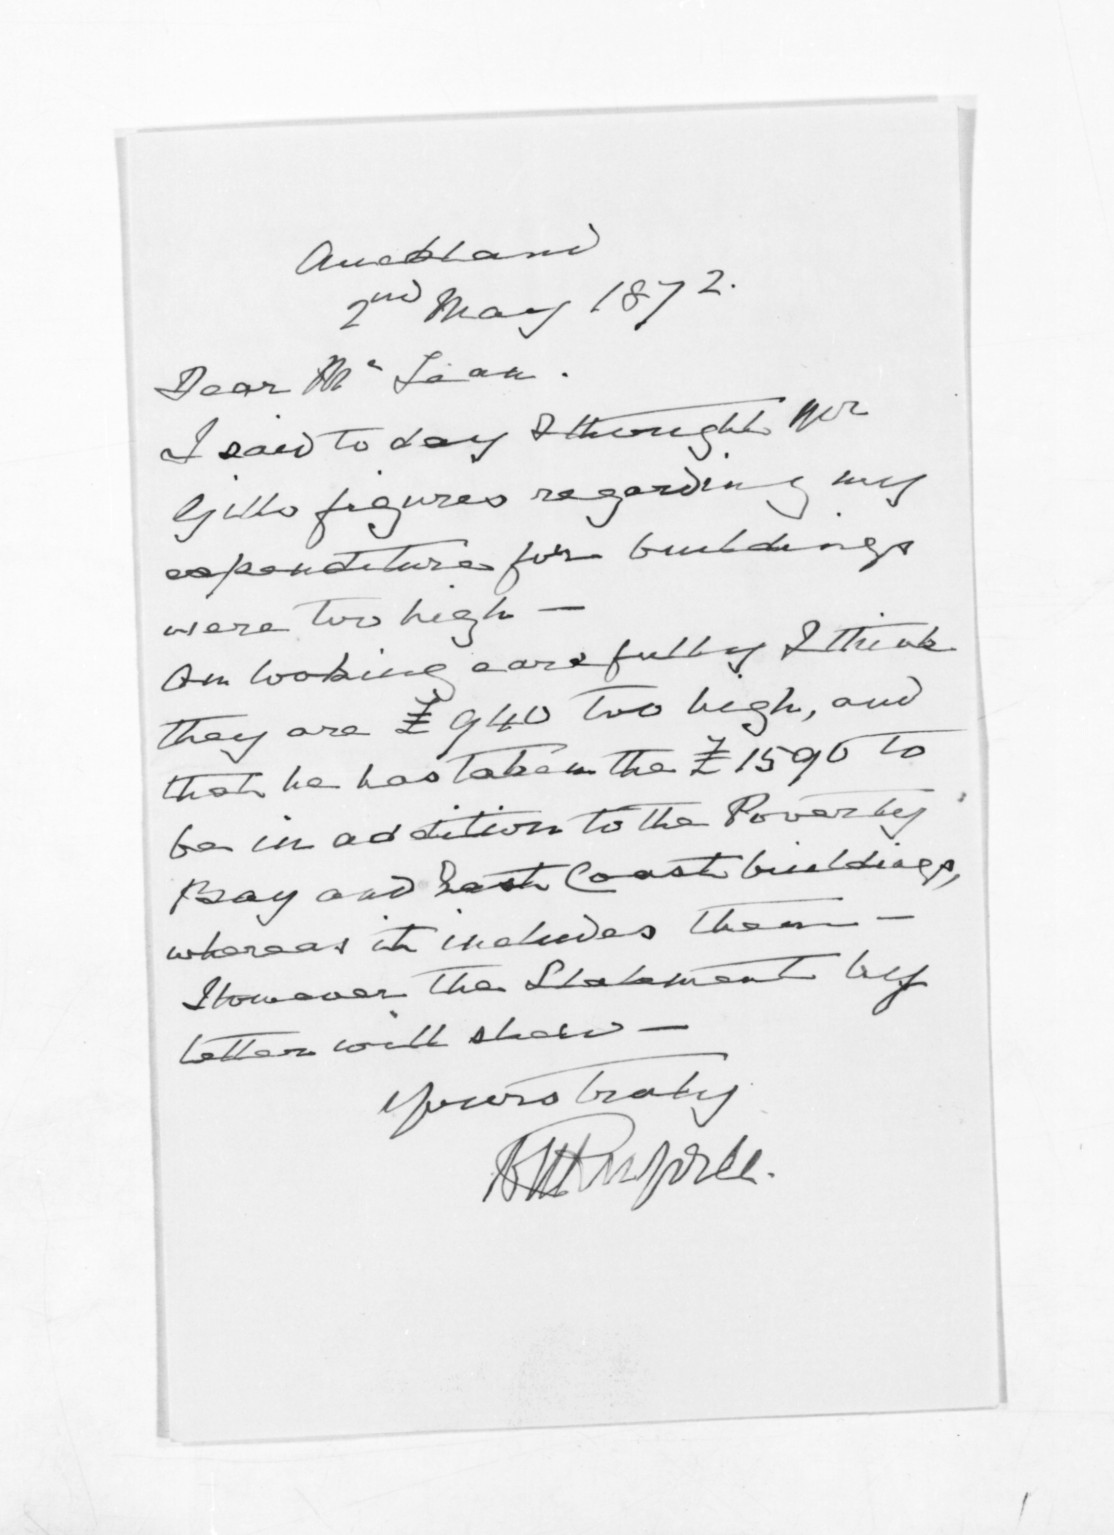 Auckland
2nd May 1872.
Dear McLean.
I said to day I thought Mr
Gills figures regarding my
expenditure for buildings
were too high —
On looking carefully I think
they are £940 too high, and
that he has taken the £1590 to
be in addition to the Poverty
Bay and East Coast buildings,
whereas it includes them —
However the Statement by
letter will shew —
Yours truly